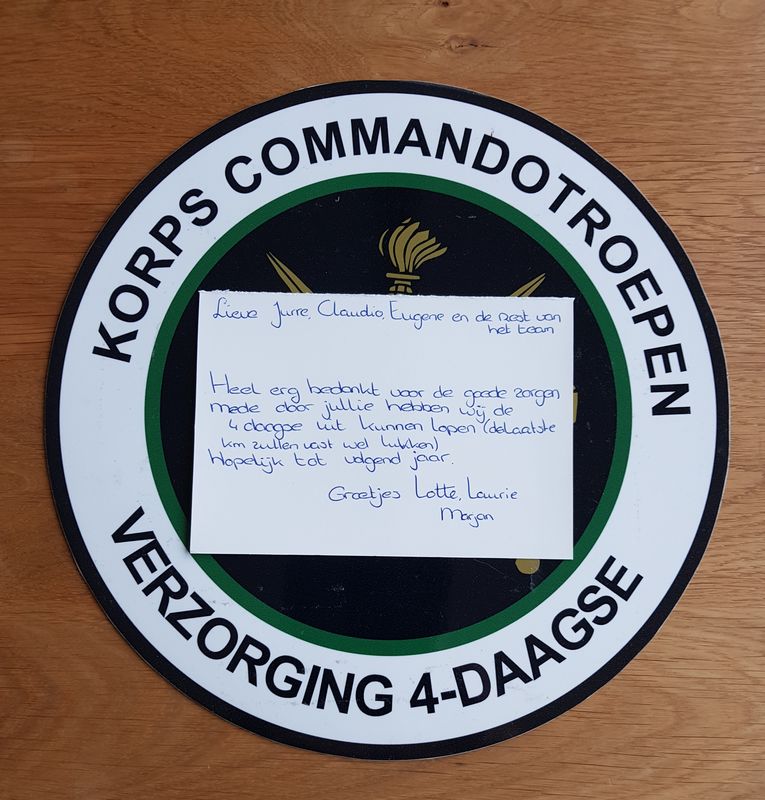 KORPS COMMANDOTROEPEN
Lieve Jurre, Claudio, Eugene en de rest van
het team
Heel erg bedankt voor de goede zorgen
mede door jullie hebben wij de
4 daagse uit kunnen lopen (de laatste
km zullen vast wel lukken)
Hopelijk tot volgend jaar.
Groetjes Lotte, Laurie
Marjan
VERZORGING 4-DAAGSE